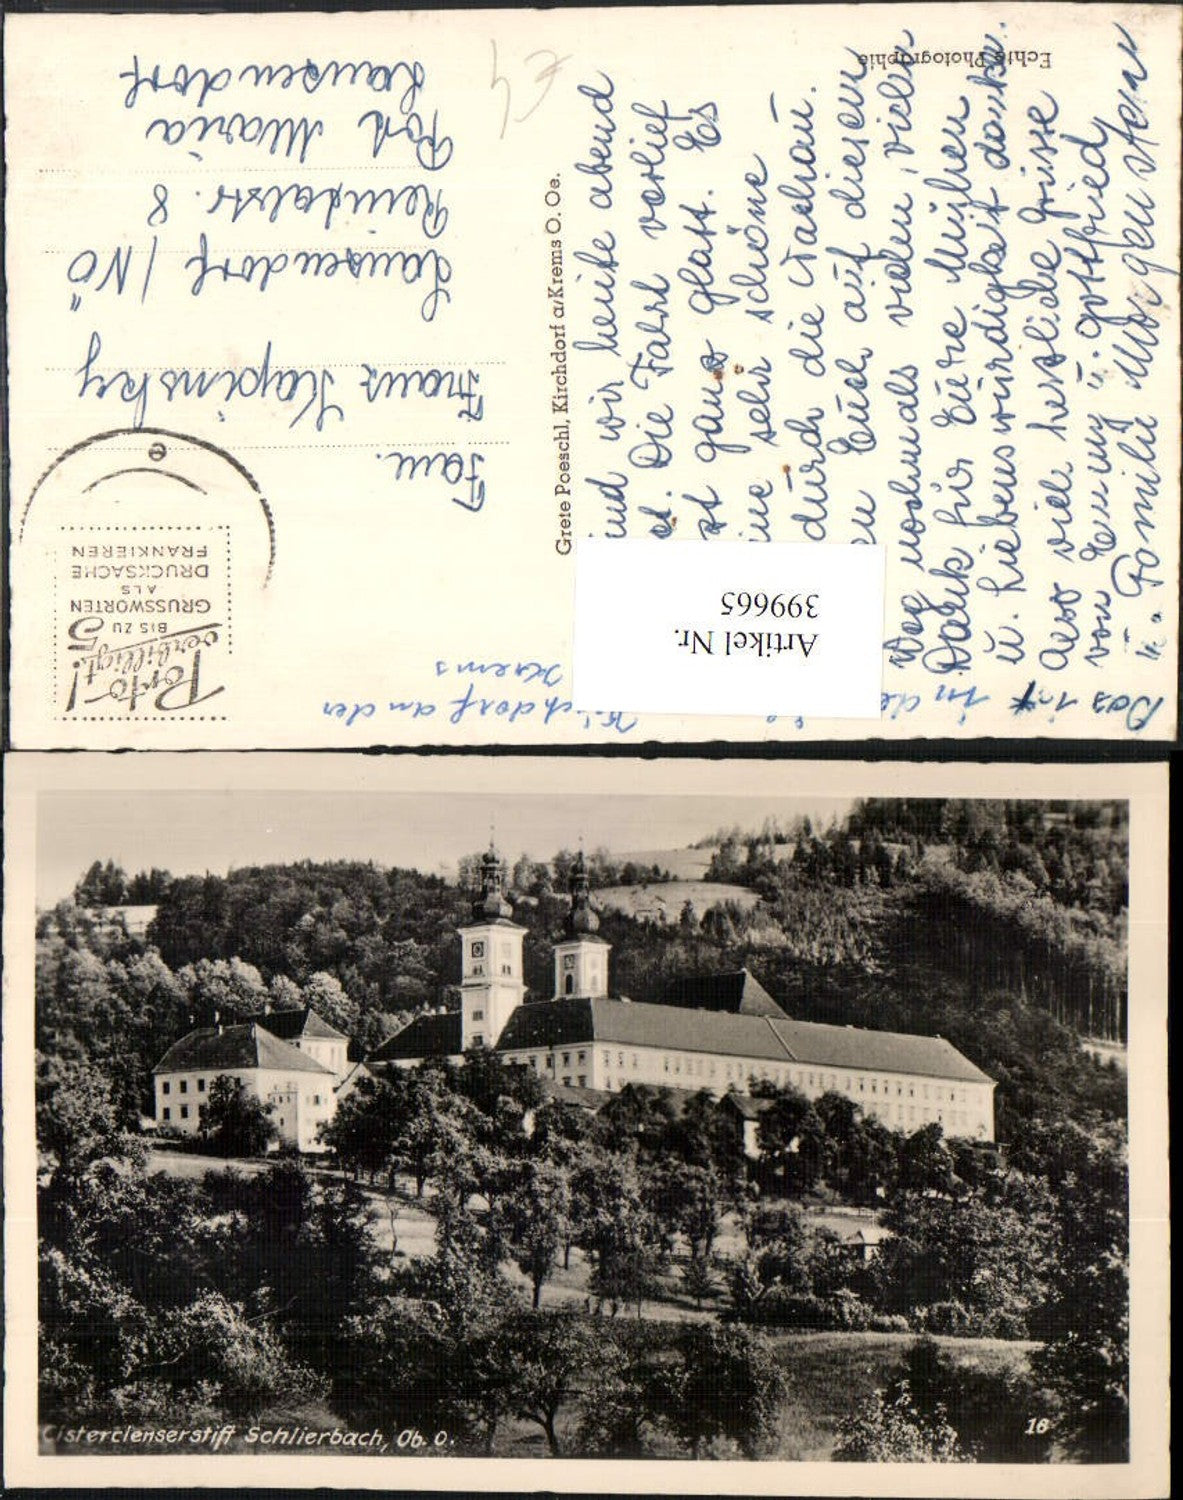 Echte Photographie
Fam.
Franz Kapinsky
Lanzendorf / NÖ
Reindlstr. 8
Post Maria
Lanzendorf
Porto-!
verbilligt!
BIS ZU 5
GRUSSWORTEN
ALS
DRUCKSACHE
FRANKIEREN
e
Grete Poeschl, Kirchdorf a/Krems O. Oe.
wir heute abend
Die Fahrt verlief
ganz glatt. Es
sehr schöne
durch die Wachau.
Euch auf diesem
Weg nochmals vielen, vielen
Dank für Eure Mühen
u. Liebenswürdigkeit danke.
Also viele herzliche Grüsse
von Emmy u. Gottfried
u. Familie Morgenstern
Das ist in
Kirchdorf an der
Krems
Artikel Nr.
399665
Cistercienserstift Schlierbach, Ob. O.
16